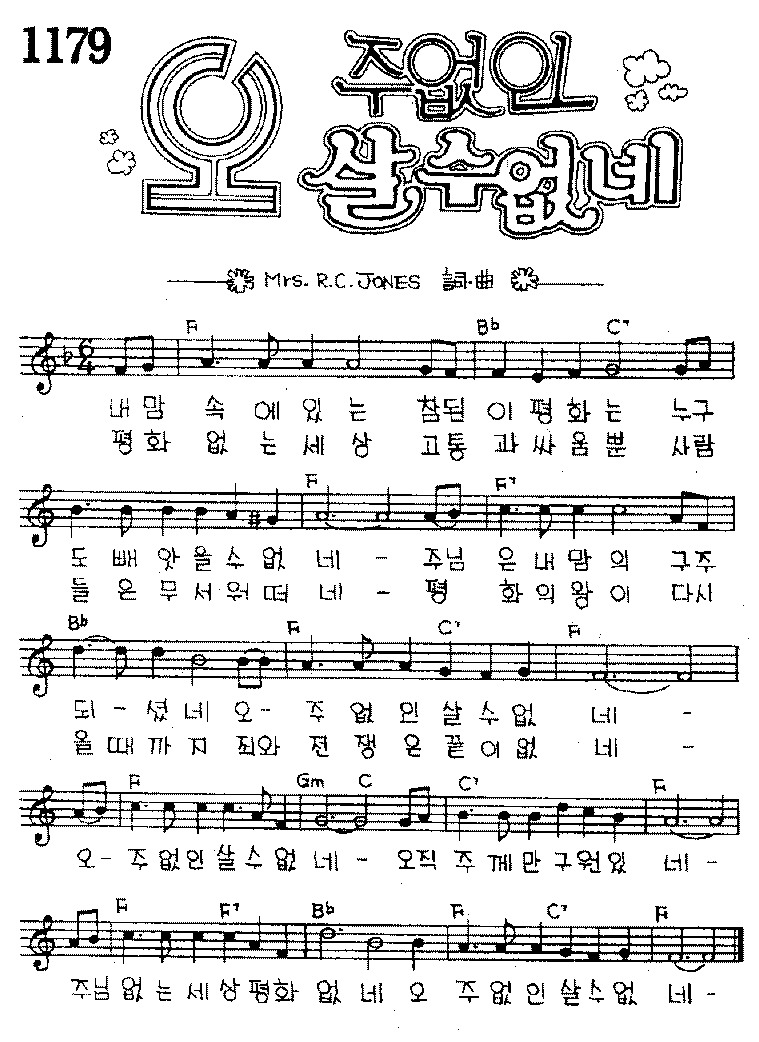 1179
오 주없인
살수없네
Mrs. R.C. JONES 詞·曲
F B♭ C7
6 4
내 맘 속 에 있 는 참된 이 평 화 는 누구
평화 없 는 세 상 고통 과 싸 움 뿐 사람
F F7
도 빼 앗 을 수 없 네 - 주님 은 내 맘 의 구주
들 은 무 서 워 떠 네 - 평 화 의 왕 이 다시
B♭ F C7 F
되 - 셨 네 오 - 주 없 인 살 수 없 네 -
올 때 까 지 죄와 전 쟁 은 끝 이 없 네 -
F Gm C C7 F
오 - 주 없 인 살 수 없 네 - 오직 주 께 만 구 원 있 네 -
F F7 B♭ F C7 F
주님 없 는 세 상 평 화 없 네 오 주 없 인 살 수 없 네 -